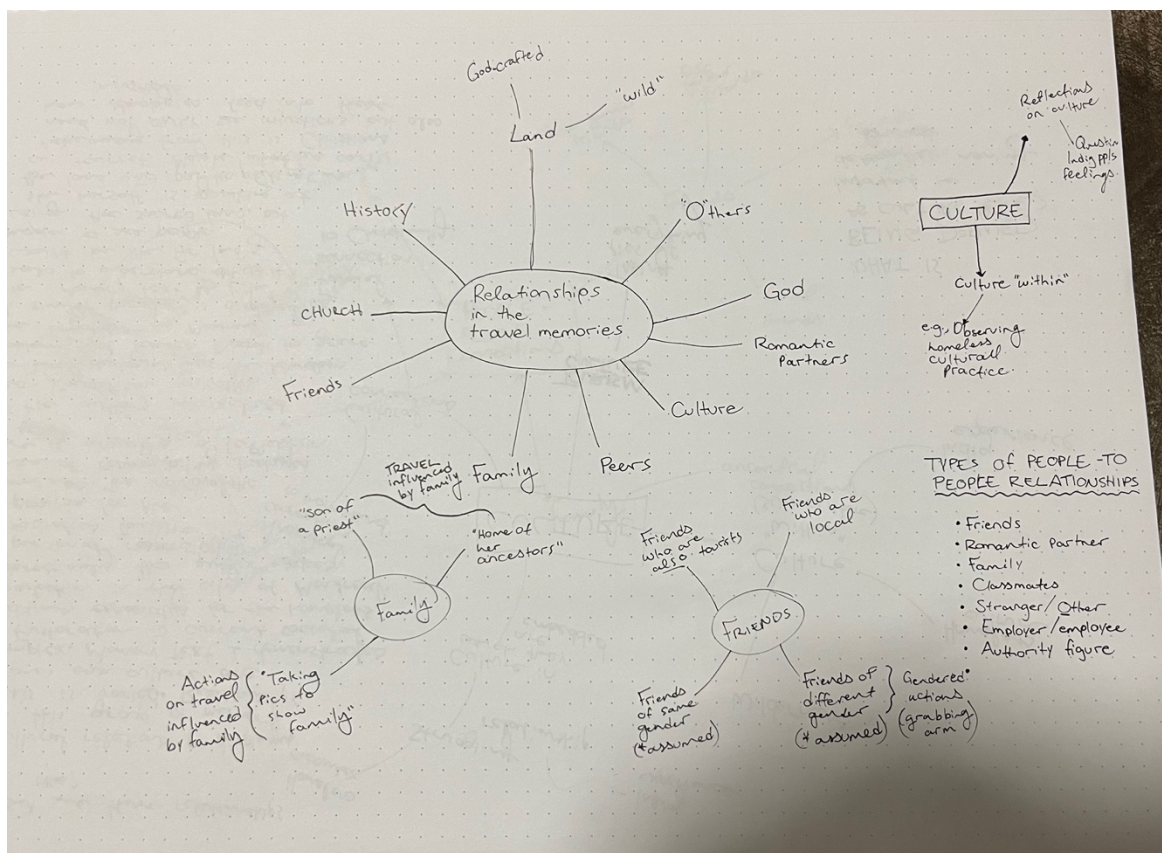 God-crafted
"wild"
Land
History
"O"thers
CHURCH
Relationships
in the
travel memories
God
Romantic
Partners
Friends
Culture
Family
Peers
Reflections
on culture
Question
Indig ppls
feelings.
CULTURE
Culture "within"
e.g., Observing
homeless
cultural
Practice.
TRAVEL
influenced
by family
"son of
a priest"
"Home of
her
ancestors"
Family
Actions
on travel
influenced
by family
"Taking
pics to
show
family"
Friends
who are
also tourists
Friends
who are
local
FRIENDS
Friends
of same
gender
(*assumed)
Friends of
different
gender
(*assumed)
Gendered"
actions
(grabbing
arm)
TYPES of PEOPLE-TO
PEOPLE RELATIONSHIPS
• Friends
• Romantic Partner
• Family
• Classmates
• Stranger/Other
• Employer/employee
• Authority figure